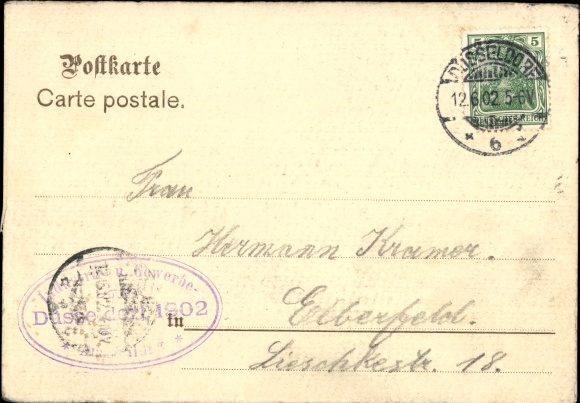 Postkarte
Carte postale.
5
DÜSSELDORF
12.6.02 5-6N
* 6
REICH
Frau
Hermann Kramer.
in Elberfeld.
Lieschkestr. 18.
u. Gewerbe-
Düsseldorf 1902